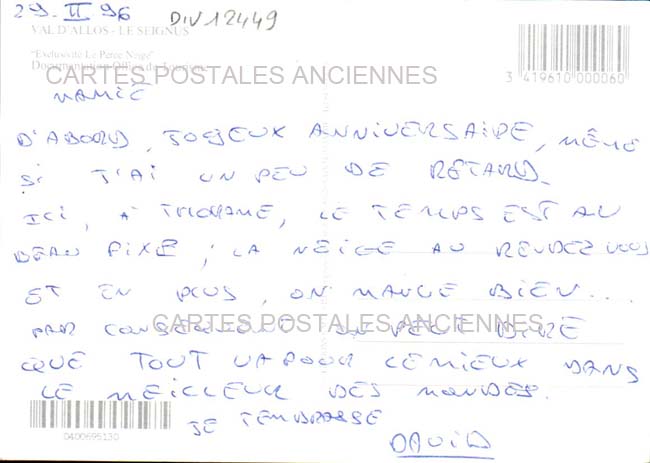 29. II 96 DIV12449
VAL D'ALLOS - LE SEIGNUS
"Exclusivité Le Perce Neige"
Documentation Office du Tourisme
CARTES POSTALES ANCIENNES
3 419610 000060
MAMIE
D'ABORD, JOYEUX ANNIVERSAIRE, MÊME
SI J'AI UN PEU DE RETARD.
ICI, A LE TEMPS EST AU
BEAU FIXE ; LA NEIGE AU RENDEZ VOUS
ET EN PLUS, ON MANGE BIEN...
PAR CONSÉQUENT ON PEUT DIRE
CARTES POSTALES ANCIENNES
QUE TOUT VA POUR LE MIEUX DANS
LE MEILLEUR DES MONDES.
JE T'EMBRASSE
DAVID
0400695130